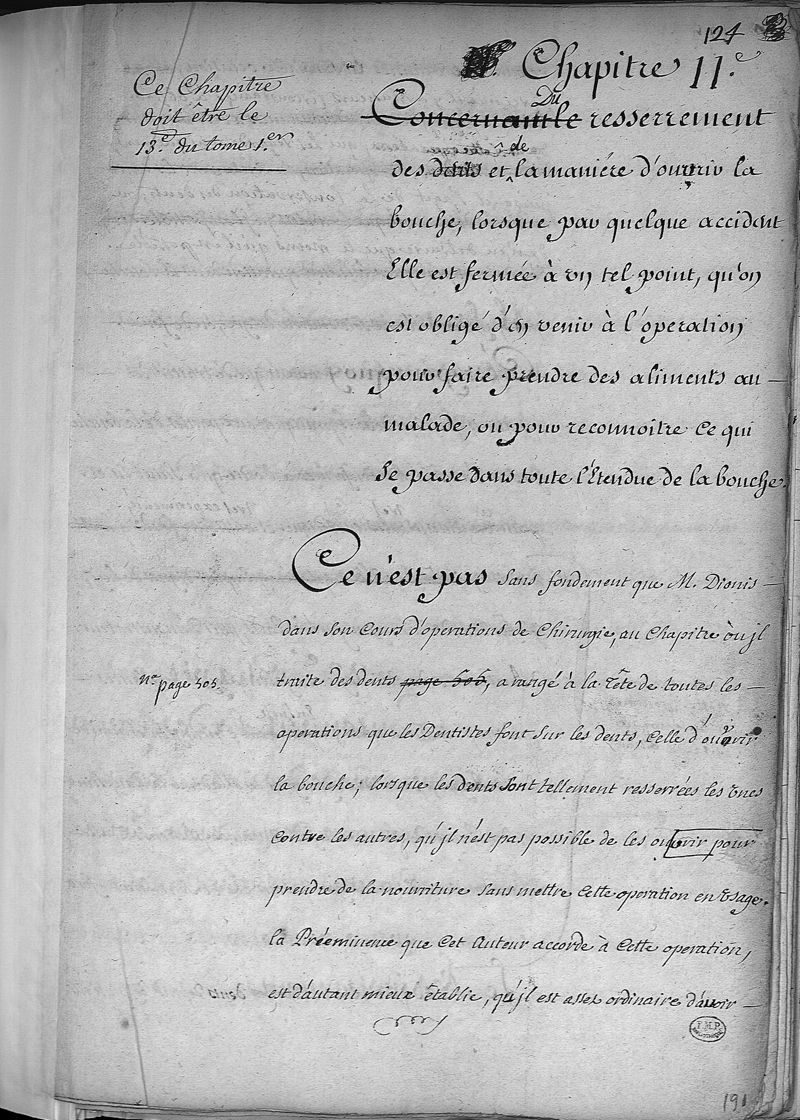 124
Chapitre 11.e
Ce Chapitre
doit être le
13.e du tome 1.er
Du
Concernant le resserrement
de
des dents et la maniére d'ouvrir la
bouche, lorsque par quelque accident
Elle est fermée à un tel point, qu'on
est obligé d'en venir à l'operation
pour faire prendre des aliments au
malade, ou pour reconnoitre ce qui
se passe dans toute l'Etendue de la bouche.
Ce n'est pas sans fondement que M. Dionis
dans son Cours d'operations de Chirurgie, au Chapitre où jl
traite des dents page 505, a rangé à la tête de toutes les
page 505.
operations que les Dentistes font sur les dents, Celle d'ouvrir
la bouche; lorsque les dents sont tellement resserrées les unes
Contre les autres, qu'jl n'est pas possible de les ouvrir pour
prendre de la nourriture sans mettre Cette operation en Usage.
la Prééminence que Cet Auteur accorde à Cette operation,
est d'autant mieux êtablie, qu'jl est assez ordinaire d'avoir
191